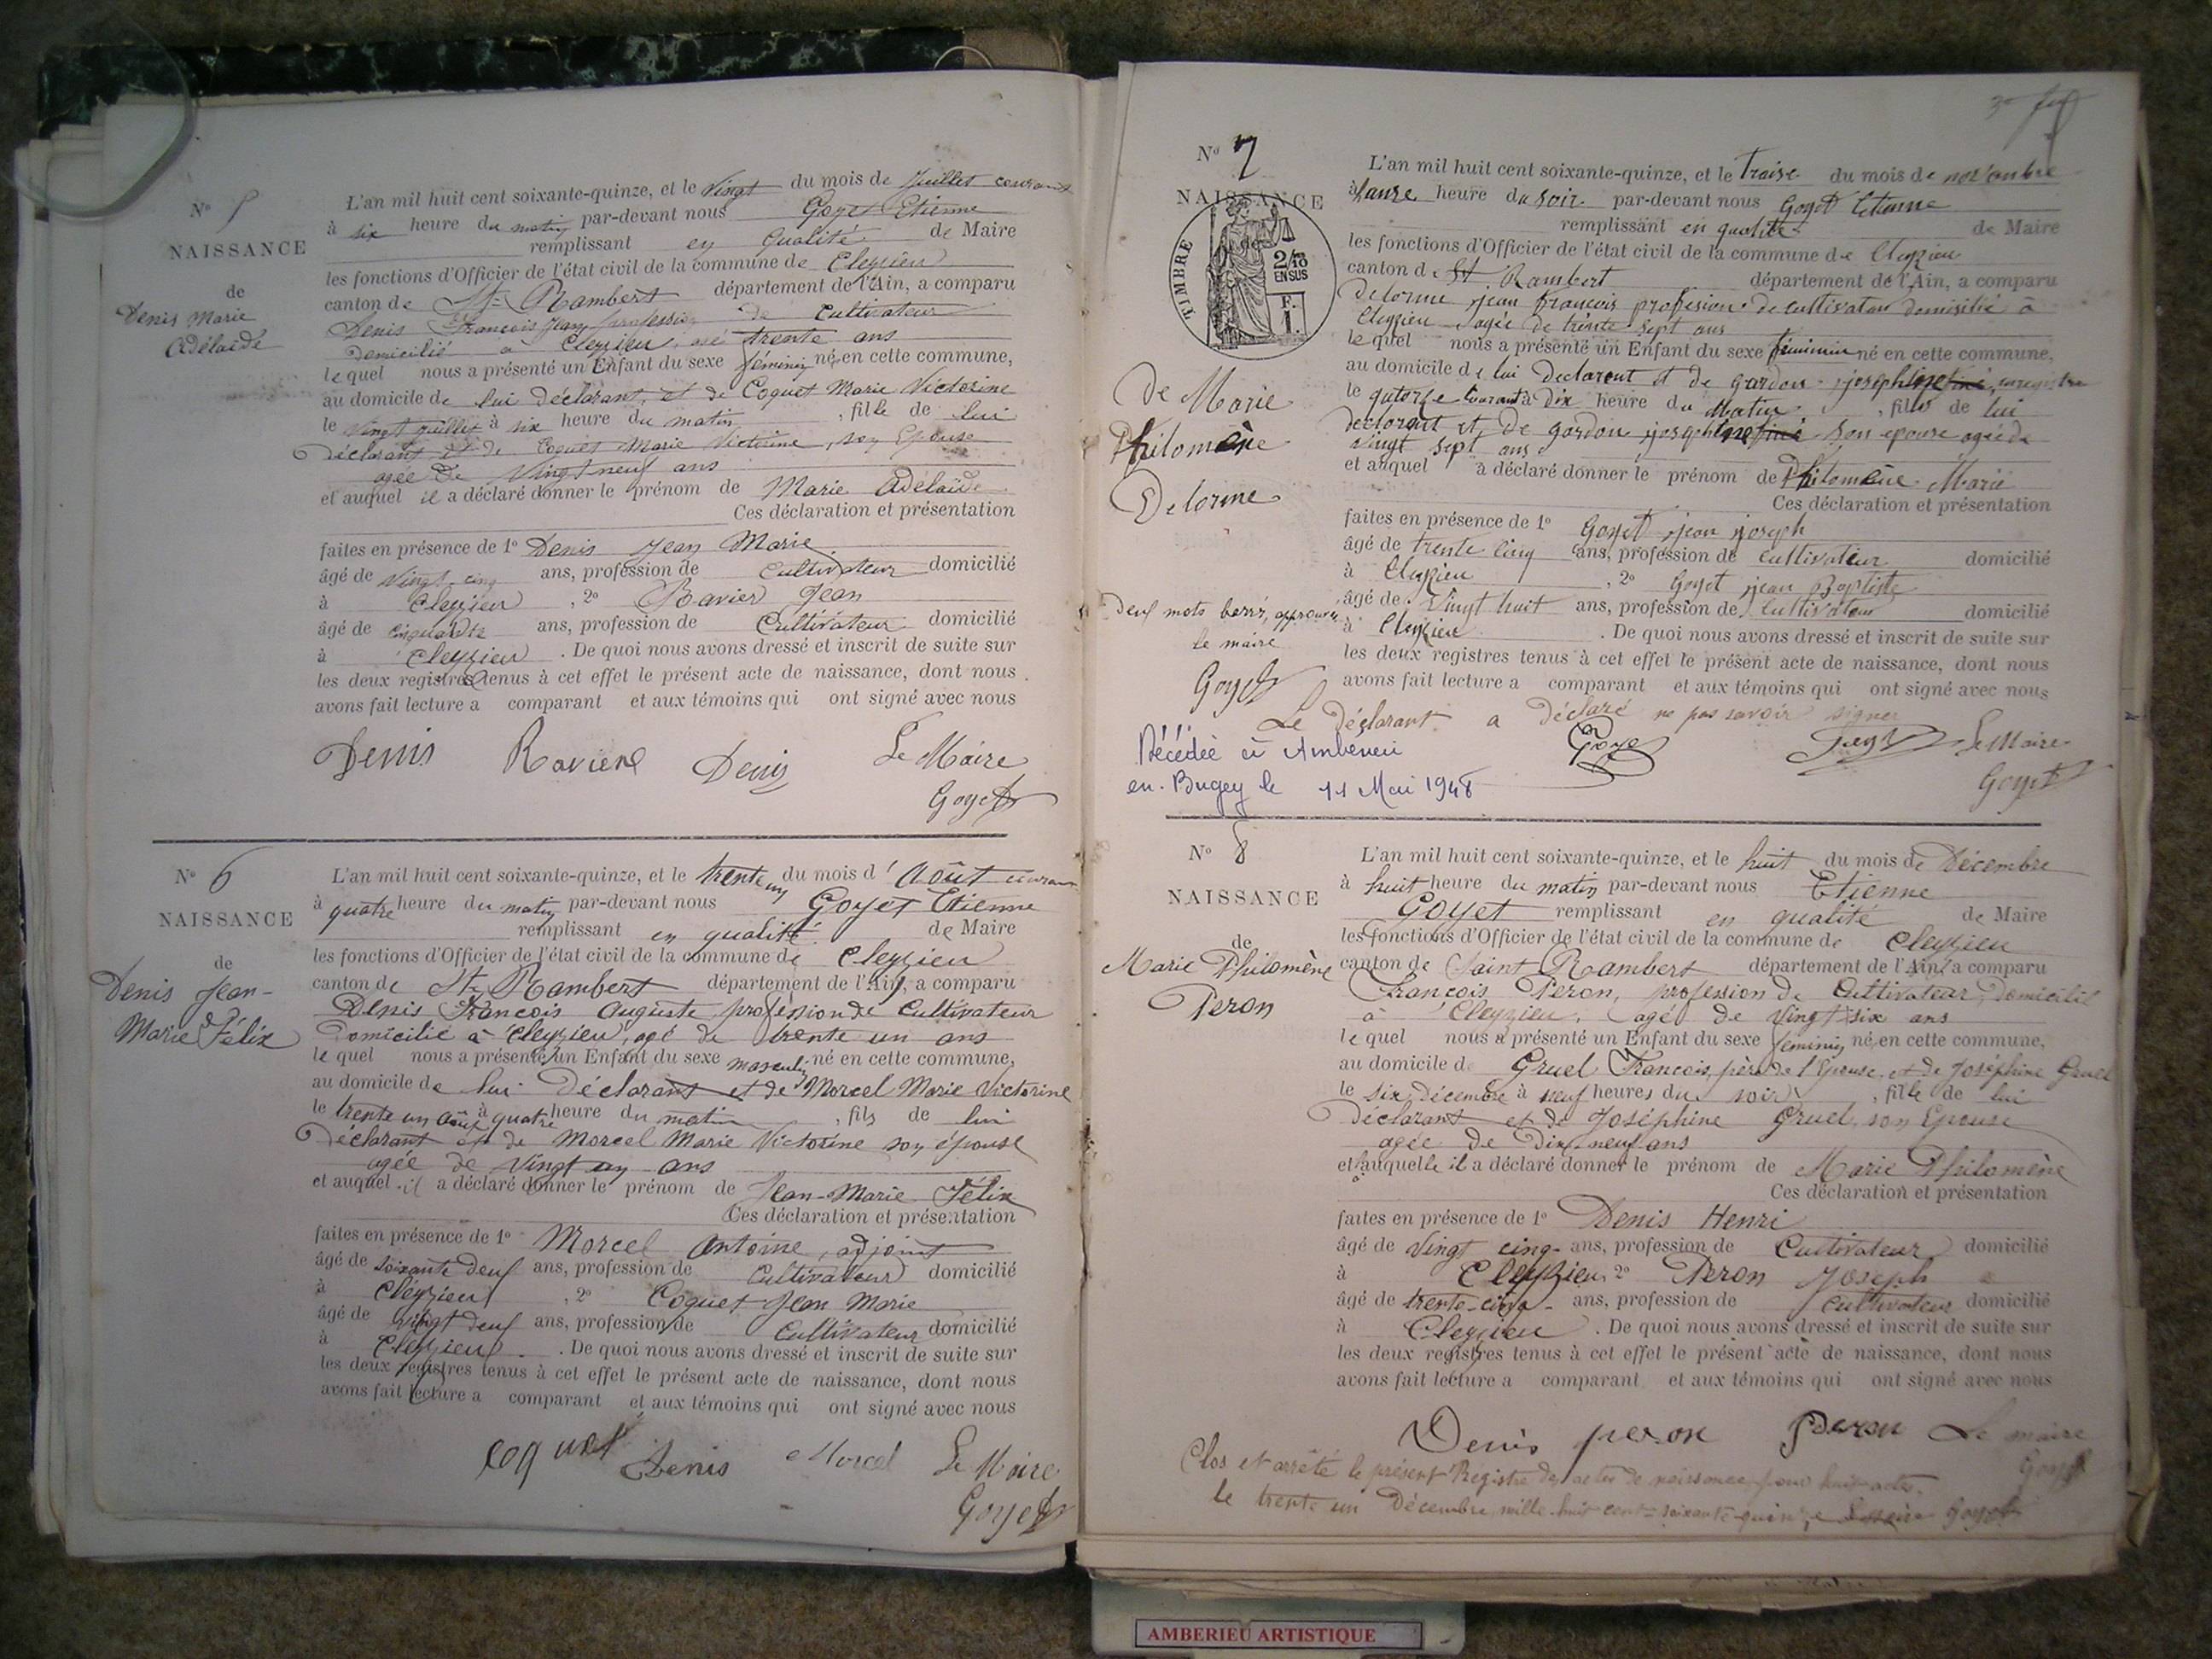 N° 5
NAISSANCE
de
Denis Marie
Adélaïde
L'an mil huit cent soixante-quinze, et le Vingt du mois de Juillet courant
à six heure du matin par-devant nous Goyet Etienne
remplissant en qualité de Maire
les fonctions d'Officier de l'état civil de la commune de Cleyzieu
canton de St Rambert département de l'Ain, a comparu
Denis François Jean profession de Cultivateur
Domicilié à Cleyzieu, agé trente ans
lequel nous a présenté un Enfant du sexe féminin né en cette commune,
au domicile de lui déclarant, et de Coquet Marie Victorine
le Vingt juillet à six heure du matin, fille de lui
déclarant et de Coquet Marie Victorine, son Epouse
agée de Vingt neuf ans
et auquel il a déclaré donner le prénom de Marie Adélaïde
Ces déclaration et présentation
faites en présence de 1° Denis Jean Marie
âgé de Vingt-cinq ans, profession de Cultivateur domicilié
à Cleyzieu, 2° Ravier Jean
âgé de cinquante ans, profession de Cultivateur domicilié
à Cleyzieu. De quoi nous avons dressé et inscrit de suite sur
les deux registres tenus à cet effet le présent acte de naissance, dont nous
avons fait lecture a comparant et aux témoins qui ont signé avec nous
Denis Raviere Denis Le Maire
Goyet
N° 6
NAISSANCE
de
Denis Jean-
Marie Félix
L'an mil huit cent soixante-quinze, et le trente un du mois d'Août courant
à quatre heure du matin par-devant nous Goyet Etienne
remplissant en qualité de Maire
les fonctions d'Officier de l'état civil de la commune de Cleyzieu
canton de St Rambert département de l'Ain, a comparu
Denis François Auguste profession de Cultivateur
Domicilié à Cleyzieu, agé de trente un ans
lequel nous a présenté un Enfant du sexe masculin né en cette commune,
au domicile de lui Déclarant et de Morcel Marie Victorine
le trente un août à quatre heure du matin, fils de lui
Déclarant et de Morcel Marie Victorine son épouse
agée de Vingt un ans
et auquel il a déclaré donner le prénom de Jean-Marie Félix
Ces déclaration et présentation
faites en présence de 1° Morcel Antoine, adjoint
âgé de soixante deux ans, profession de Cultivateur domicilié
à Cleyzieu, 2° Coquet Jean Marie
âgé de vingt deux ans, profession de Cultivateur domicilié
à Cleyzieu. De quoi nous avons dressé et inscrit de suite sur
les deux registres tenus à cet effet le présent acte de naissance, dont nous
avons fait lecture a comparant et aux témoins qui ont signé avec nous
coquet Denis Morcel Le Maire
Goyet
N° 7
NAISSANCE
de
TIMBRE
2/10
EN SUS
F.
1.
De Marie
Philomène
Delorme
L'an mil huit cent soixante-quinze, et le du mois de novembre
à heure du soir par-devant nous Goyet Etienne
remplissant en qualité de Maire
les fonctions d'Officier de l'état civil de la commune de Cleyzieu
canton de St Rambert département de l'Ain, a comparu
Delorme jean françois profession de cultivateur domicilié à
Cleyzieu agée de trente sept ans
lequel nous a présenté un Enfant du sexe féminin né en cette commune,
au domicile de lui Declarent et de gardon josephine
le à Dix heure du Matin, fille de lui
declarant et de gardon josephine son epouse agée de
vingt sept ans
et auquel a déclaré donner le prénom de Philomène Marie
Ces déclaration et présentation
faites en présence de 1° Goyet jean joseph
âgé de trente cinq ans, profession de cultivateur domicilié
à Cleyzieu, 2° Goyet jean Baptiste
âgé de Vingt huit ans, profession de cultivateur domicilié
à Cleyzieu. De quoi nous avons dressé et inscrit de suite sur
les deux registres tenus à cet effet le présent acte de naissance, dont nous
avons fait lecture a comparant et aux témoins qui ont signé avec nous
Le Déclarant a Déclaré ne pas savoir signer
Deux mots approuvés
le maire
Goyet
Goyet Goyet Le Maire
Goyet
Décédée à Ambérieu
en Bugey le 11 Mai 1948
N° 8
NAISSANCE
de
Marie Philomène
Peron
L'an mil huit cent soixante-quinze, et le huit du mois de Décembre
à huit heure du matin par-devant nous Etienne
Goyet remplissant en qualité de Maire
les fonctions d'Officier de l'état civil de la commune de Cleyzieu
canton de Saint Rambert département de l'Ain, a comparu
François Peron, profession de Cultivateur, Domicilié
à Cleyzieu, agé de Vingt six ans
lequel nous a présenté un Enfant du sexe féminin né en cette commune,
au domicile de Gruel François, père de l'Epouse, et de Joséphine Gruel
le six Décembre à neuf heures du soir, fille de lui
déclarant et de Joséphine Gruel, son Epouse
agée de Dix neuf ans
et à auquelle il a déclaré donner le prénom de Marie Philomène
Ces déclaration et présentation
faites en présence de 1° Denis Henri
âgé de Vingt cinq ans, profession de Cultivateur domicilié
à Cleyzieu 2° Peron Joseph
âgé de trente-cinq ans, profession de cultivateur domicilié
à Cleyzieu. De quoi nous avons dressé et inscrit de suite sur
les deux registres tenus à cet effet le présent acte de naissance, dont nous
avons fait lecture a comparant et aux témoins qui ont signé avec nous
Denis peron Peron Le maire
Goyet
Clos et arrêté le présent Registre des actes de naissance pour huit actes.
le trente un Décembre mille huit cent soixante-quinze Le Maire Goyet
AMBERIEU ARTISTIQUE